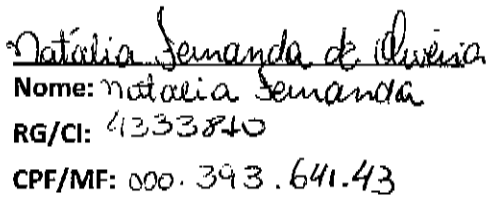 Natália Fernanda de Oliveira
Nome: Natalia Fernanda
RG/CI: 4333840
CPF/MF: 000.393.641.43